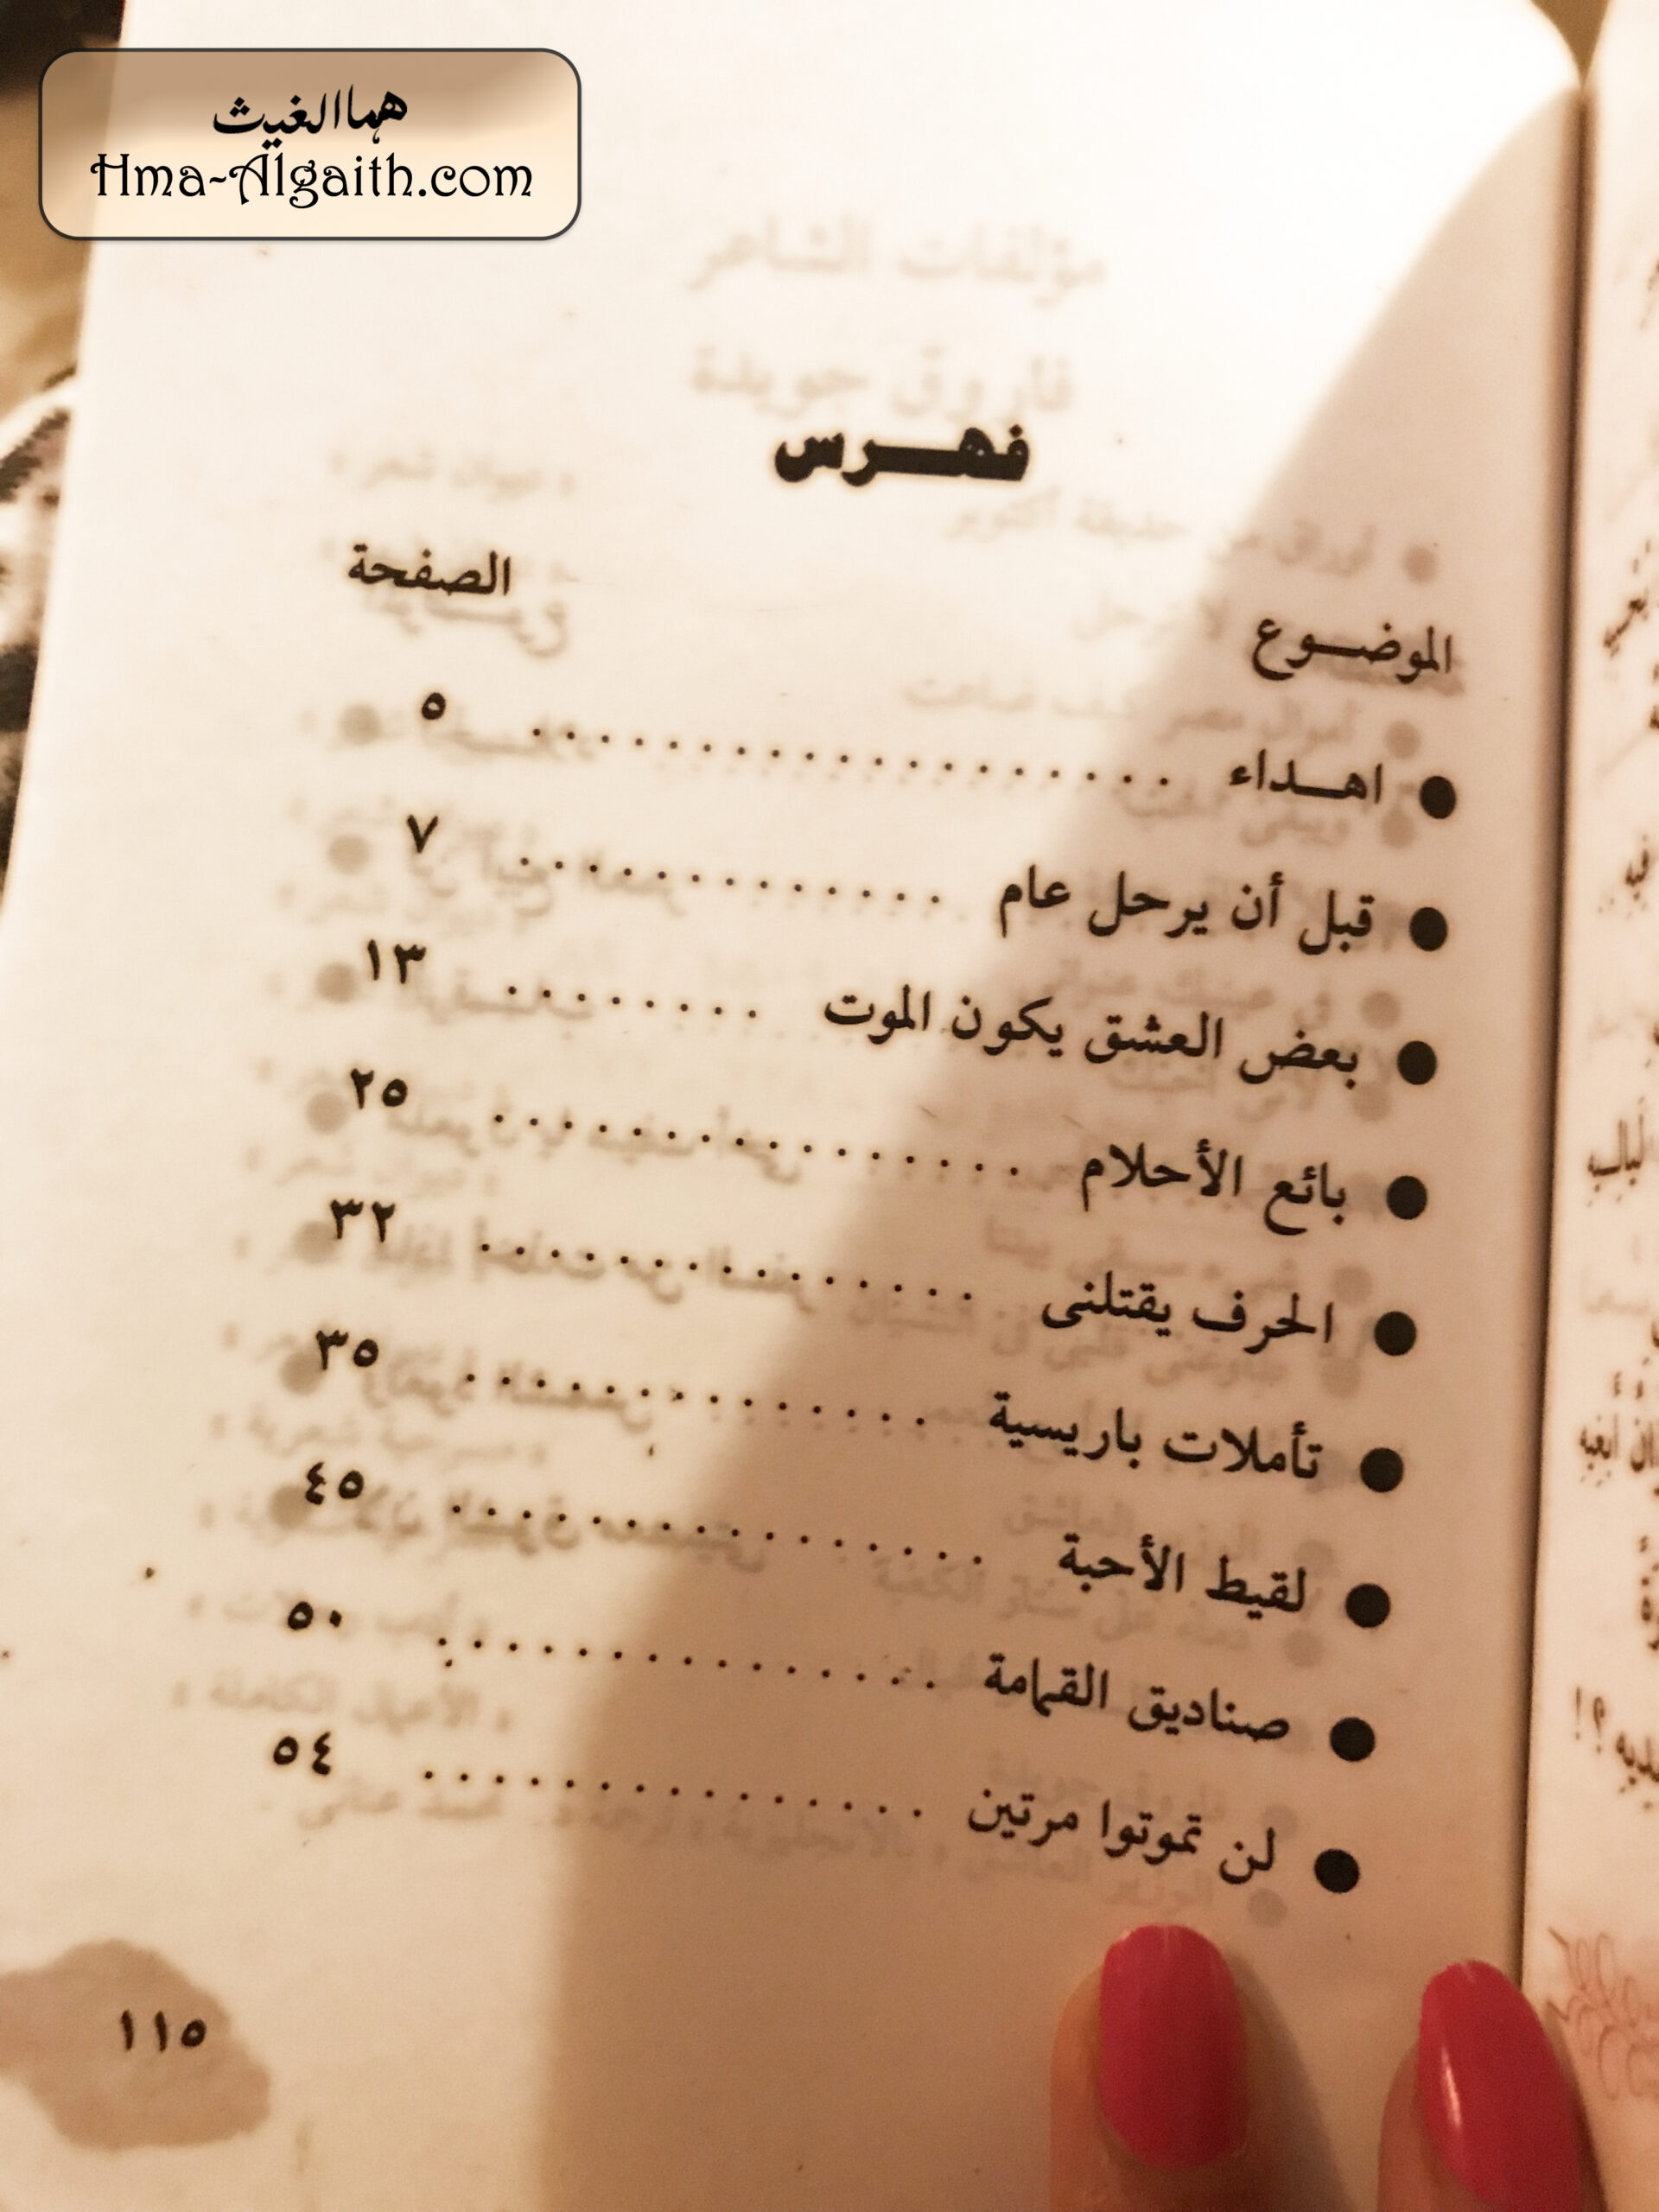 هما الغيث
Hma-Algaith.com
فهرس
الموضوع الصفحة
● اهداء .................... ٥
● قبل أن يرحل عام ............. ٧
● بعض العشق يكون الموت ........ ١٣
● بائع الأحلام ................ ٢٥
● الحرف يقتلنى ............... ٣٢
● تأملات باريسية .............. ٣٥
● لقيط الأحبة ................ ٤٥
● صناديق القمامة .............. ٥٠
● لن تموتوا مرتين .............. ٥٤
١١٥